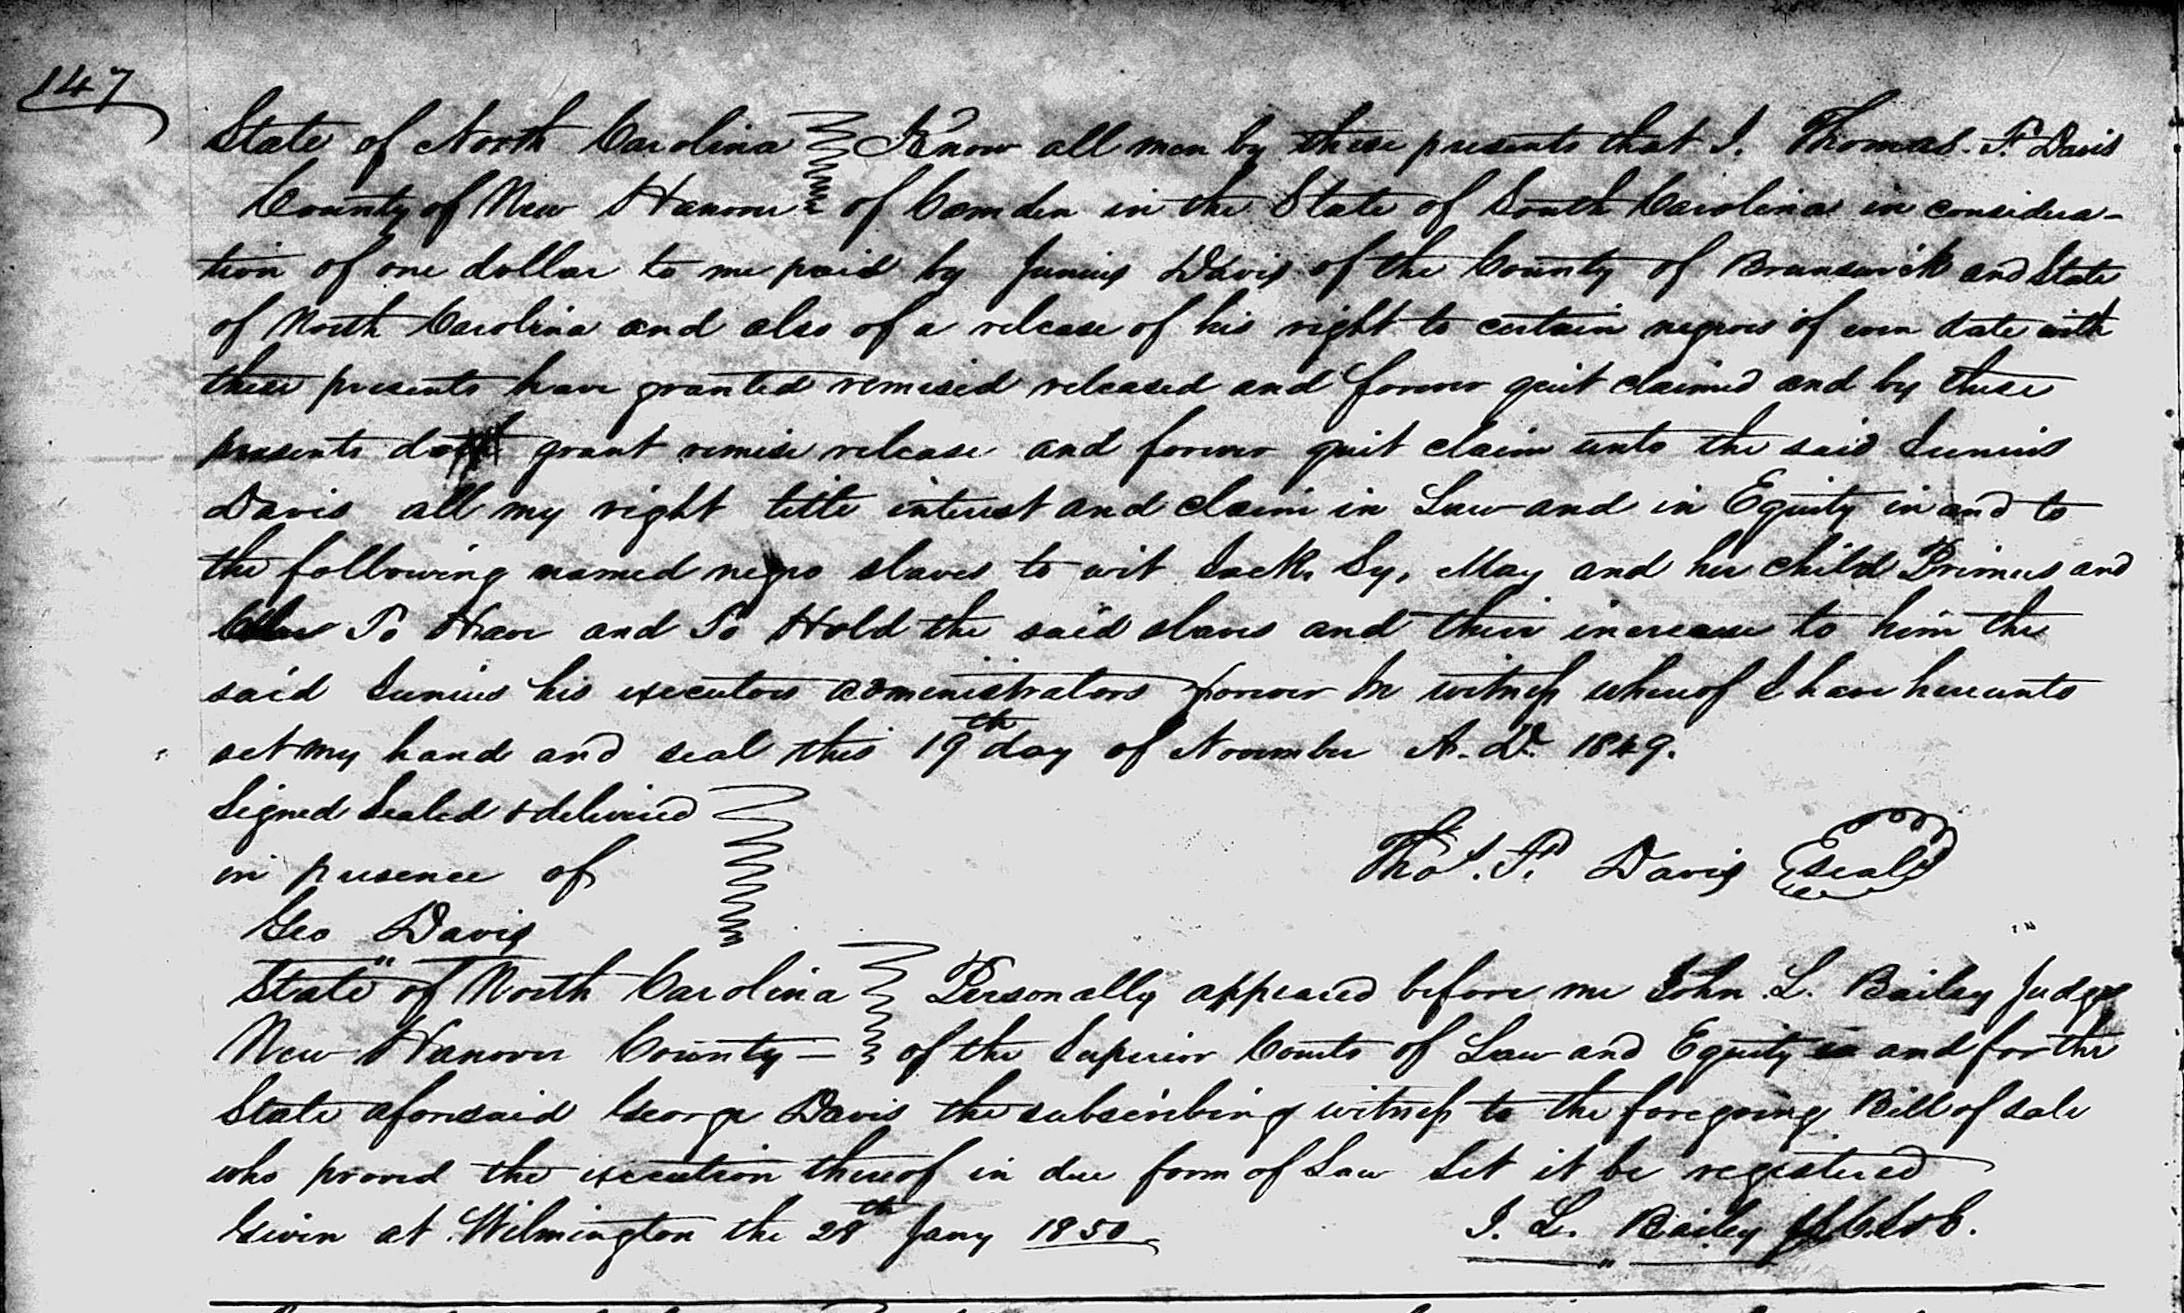 147
State of North Carolina Know all men by these presents that I. Thomas. F. Davis
County of New Hanover of Camden in the State of South Carolina in considera-
tion of one dollar to me paid by Junius Davis of the County of Brunswick and State
of North Carolina and also of a release of his right to certain negroes of even date with
these presents have granted remised released and forever quit claimed and by these
presents do grant remise release and forever quit claim unto the said Junius
Davis all my right title interest and claim in Law and in Equity in and to
the following named negro slaves to wit Jack, Sy, May and her child Primus and
To Have and To Hold the said slaves and their increase to him the
said Junius his executors administrators forever In witness whereof I have hereunto
set my hand and seal this 19th day of November A. D. 1849.
Signed Sealed & delivered
in presence of Thos. F. Davis seal
Geo Davis
State of North Carolina Personally appeared before me John. L. Bailey Judge
New Hanover County - of the Superior Courts of Law and Equity in and for the
State aforesaid George Davis the subscribing witness to the foregoing Bill of sale
who proved the execution thereof in due form of Law Let it be registered
Given at Wilmington the 28th Jany 1850
J. L. Bailey